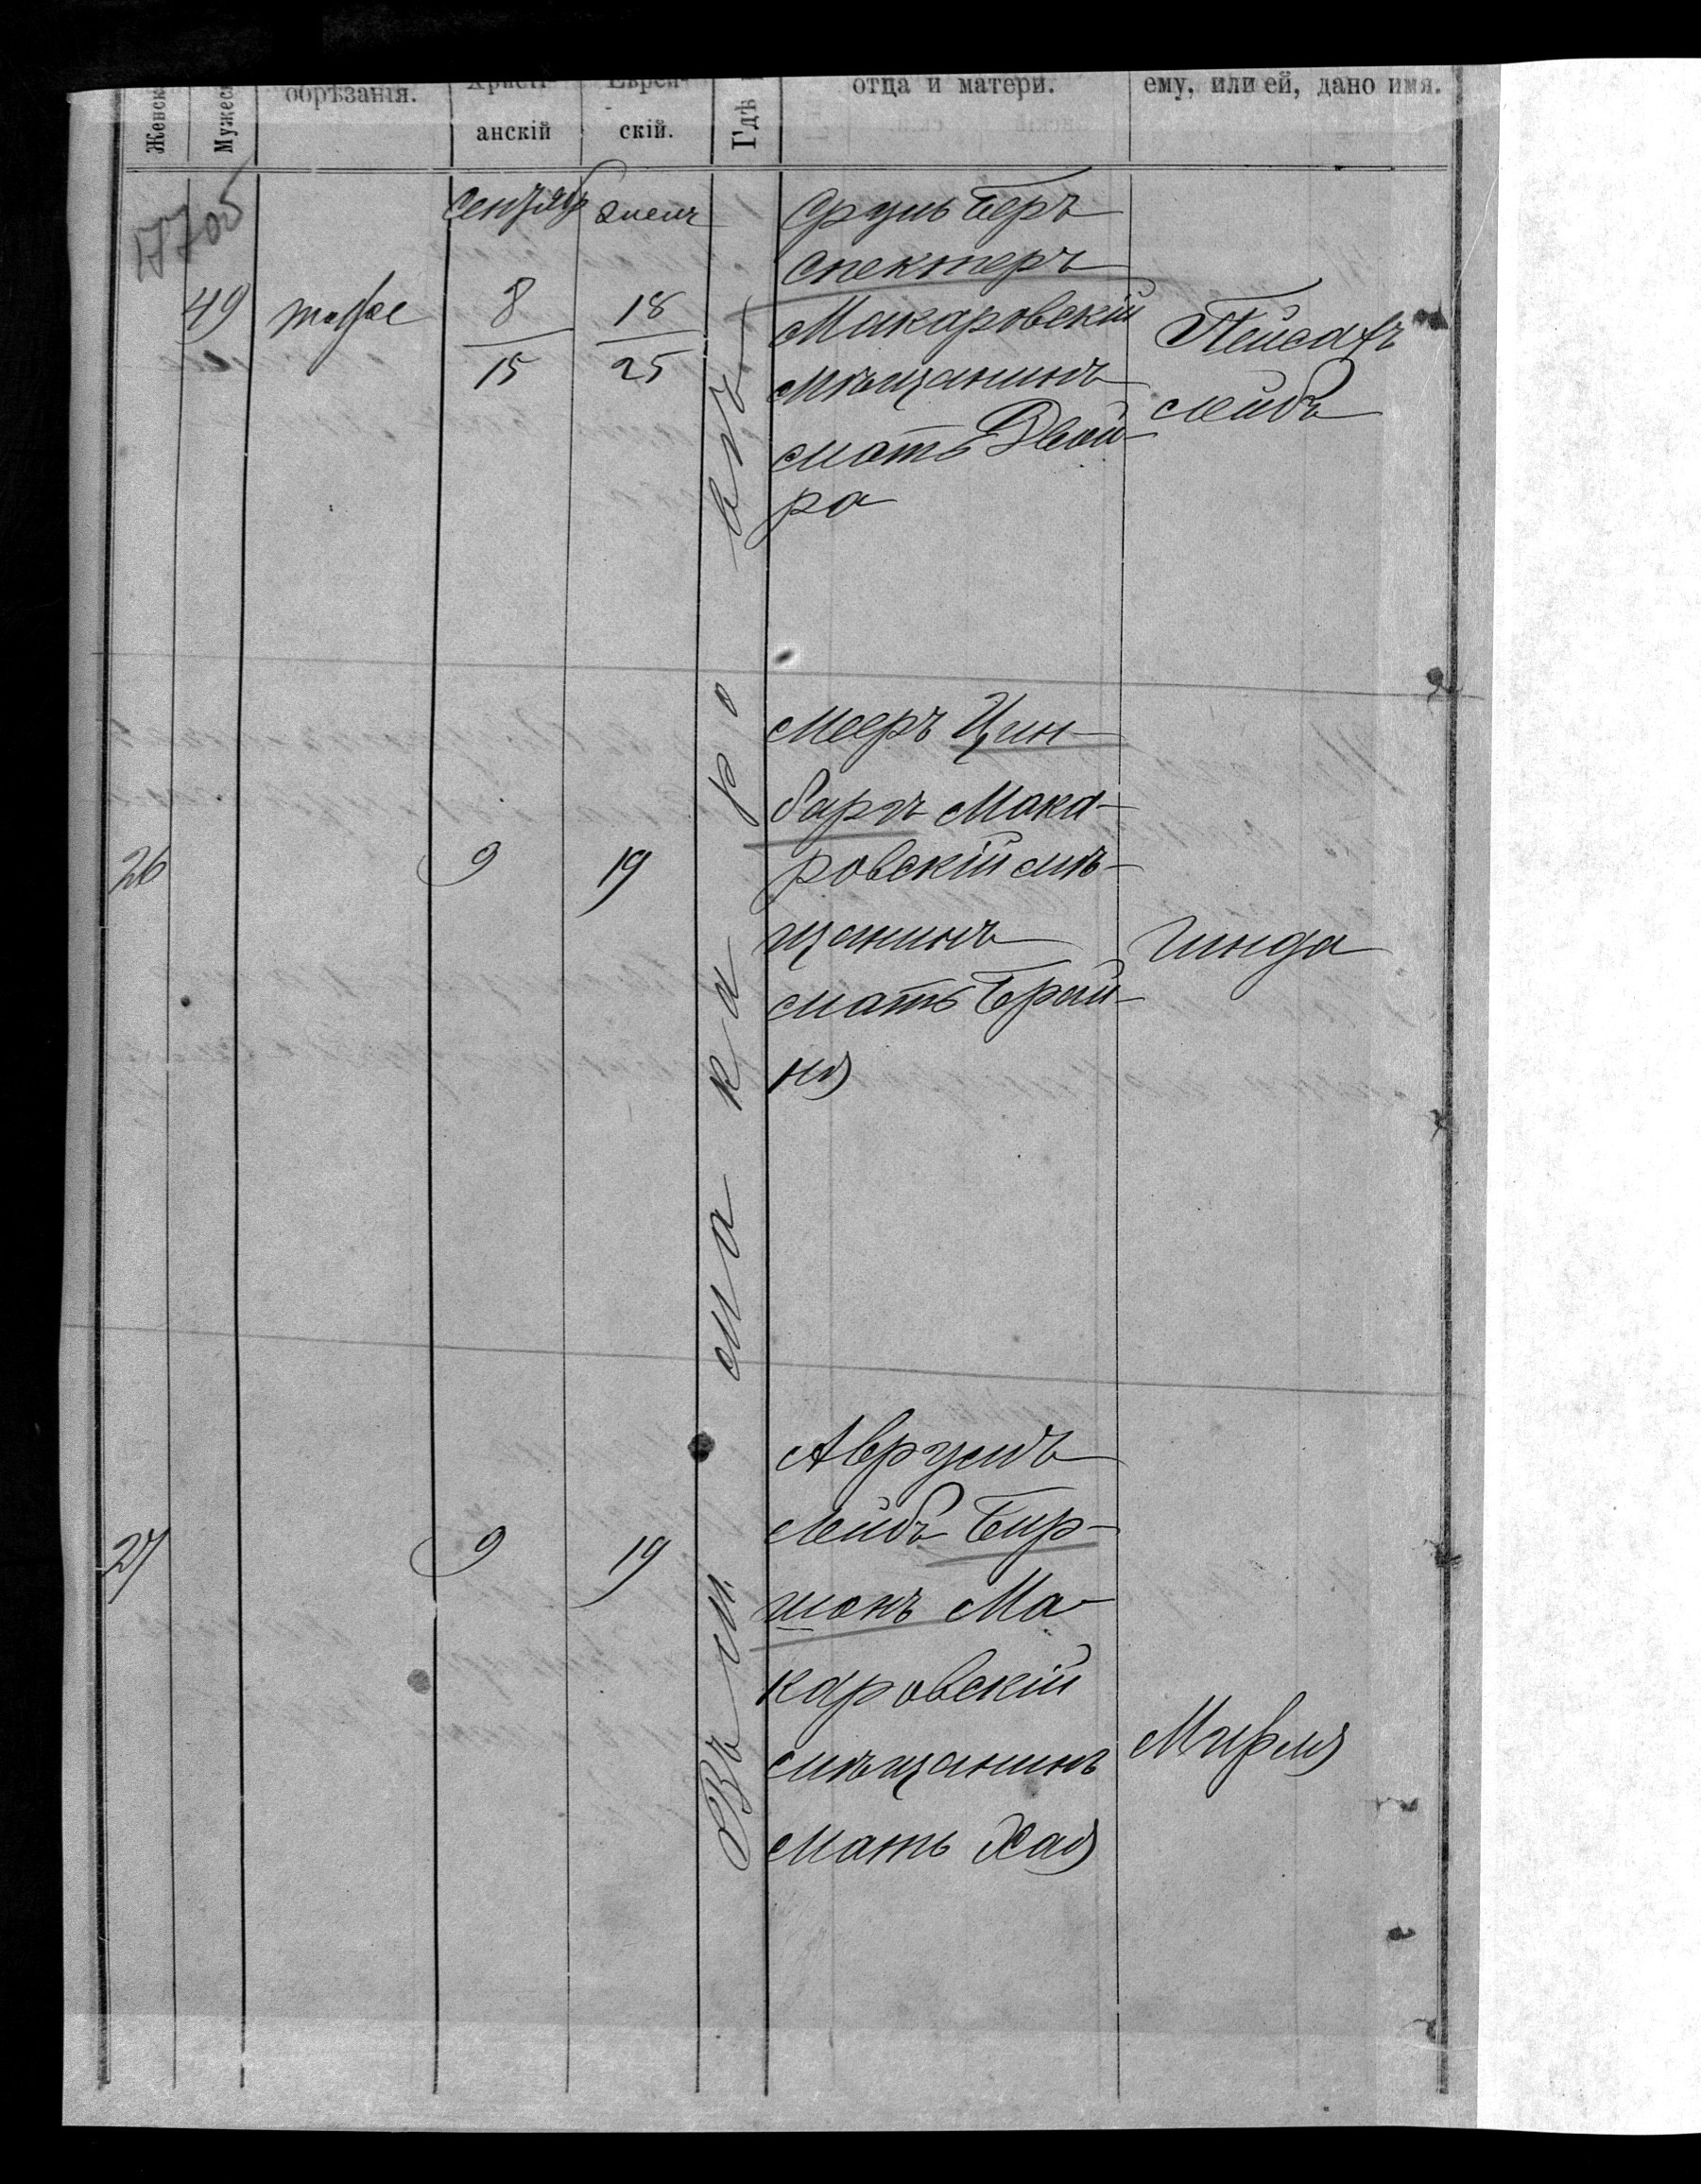 Женск
Мужес
обрѣзанія.
Христі-
анскій
Еврей-
скій.
Гдѣ
отца и матери.
ему, или ей, дано имя.
17705
Сентяб
Элелъ
49
тотже
8
15
18
25
Въ м. Макаровѣ
Сруль Беръ
Спекторъ
Макаровскій
мѣщанинъ
мать Двой-
ра
Пейсахъ
Лейбъ
26
9
19
Мееръ Цин-
баргъ Мака-
ровскій мѣ-
щанинъ
мать Брай-
на
Гинда
27
9
19
Аврумъ
Лейбъ Бир-
шокъ Ма-
каровскій
мѣщанинъ
Мать Хая
Мирля